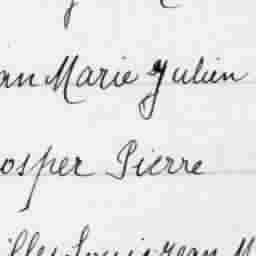 an Marie Julien
osper Pierre
illes Louis Jean M